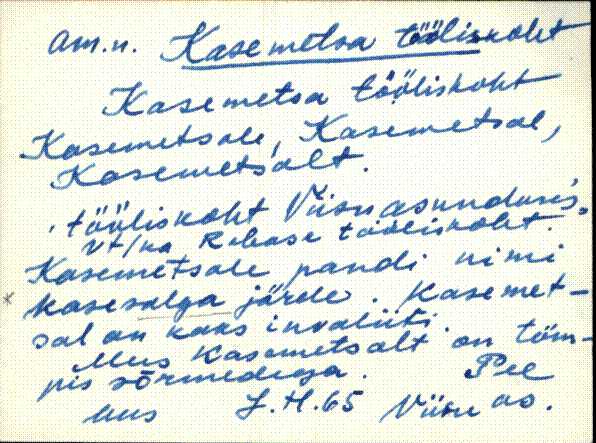 am.n. Kasemetsa tööliskoht
Kasemetsa tööliskoht
Kasemetsale, Kasemetsal,
Kasemetsalt.
tööliskoht Viisu asunduses.
vt/ka Rebase tööliskoht.
Kasemetsale pandi nimi
kasesalga järde. Kasemet-
sal on kaks invaliiti.
Mus Kasemetsalt on töm-
pis sõrmedega. Pee
Mus J.H.65 Viisu as.